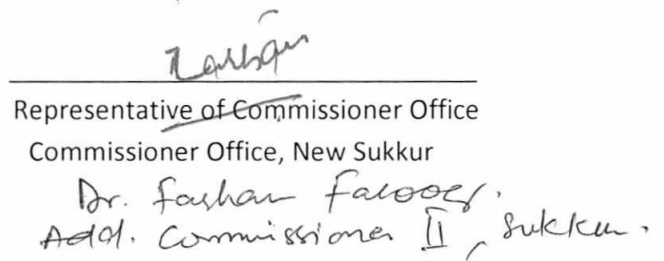 Representative of Commissioner Office
Commissioner Office, New Sukkur
Dr. Farhan Farooq.
Add. Commissioner II, Sukkur.